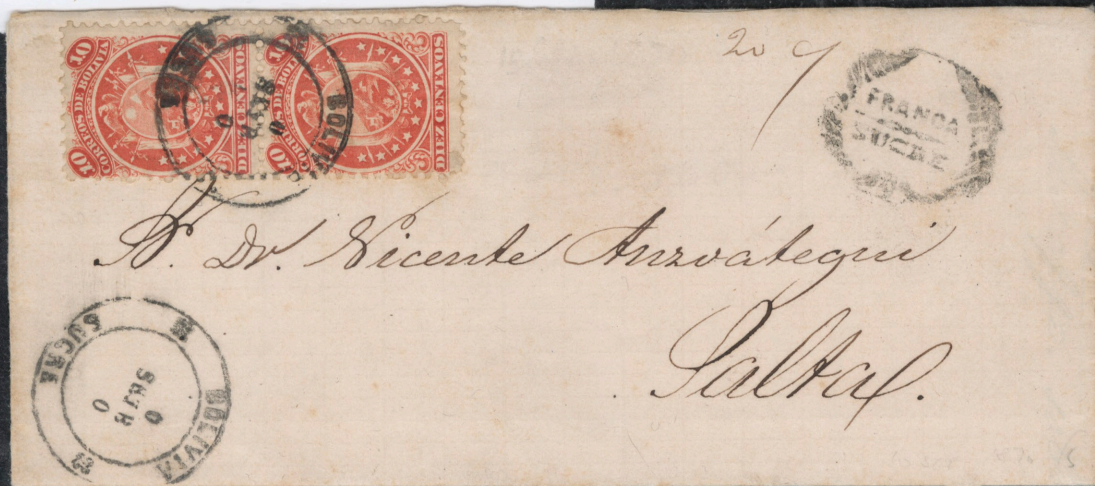 10
CORREOS DE BOLIVIA
10
DIEZ CENTAVOS
10
CORREOS DE BOLIVIA
10
DIEZ CENTAVOS
BOLIVIA
SUCRE
0
0
20
FRANCA
SUCRE
Dr. Vicente Anzoátegui
Salta.
SUCRE
BOLIVIA
0
0